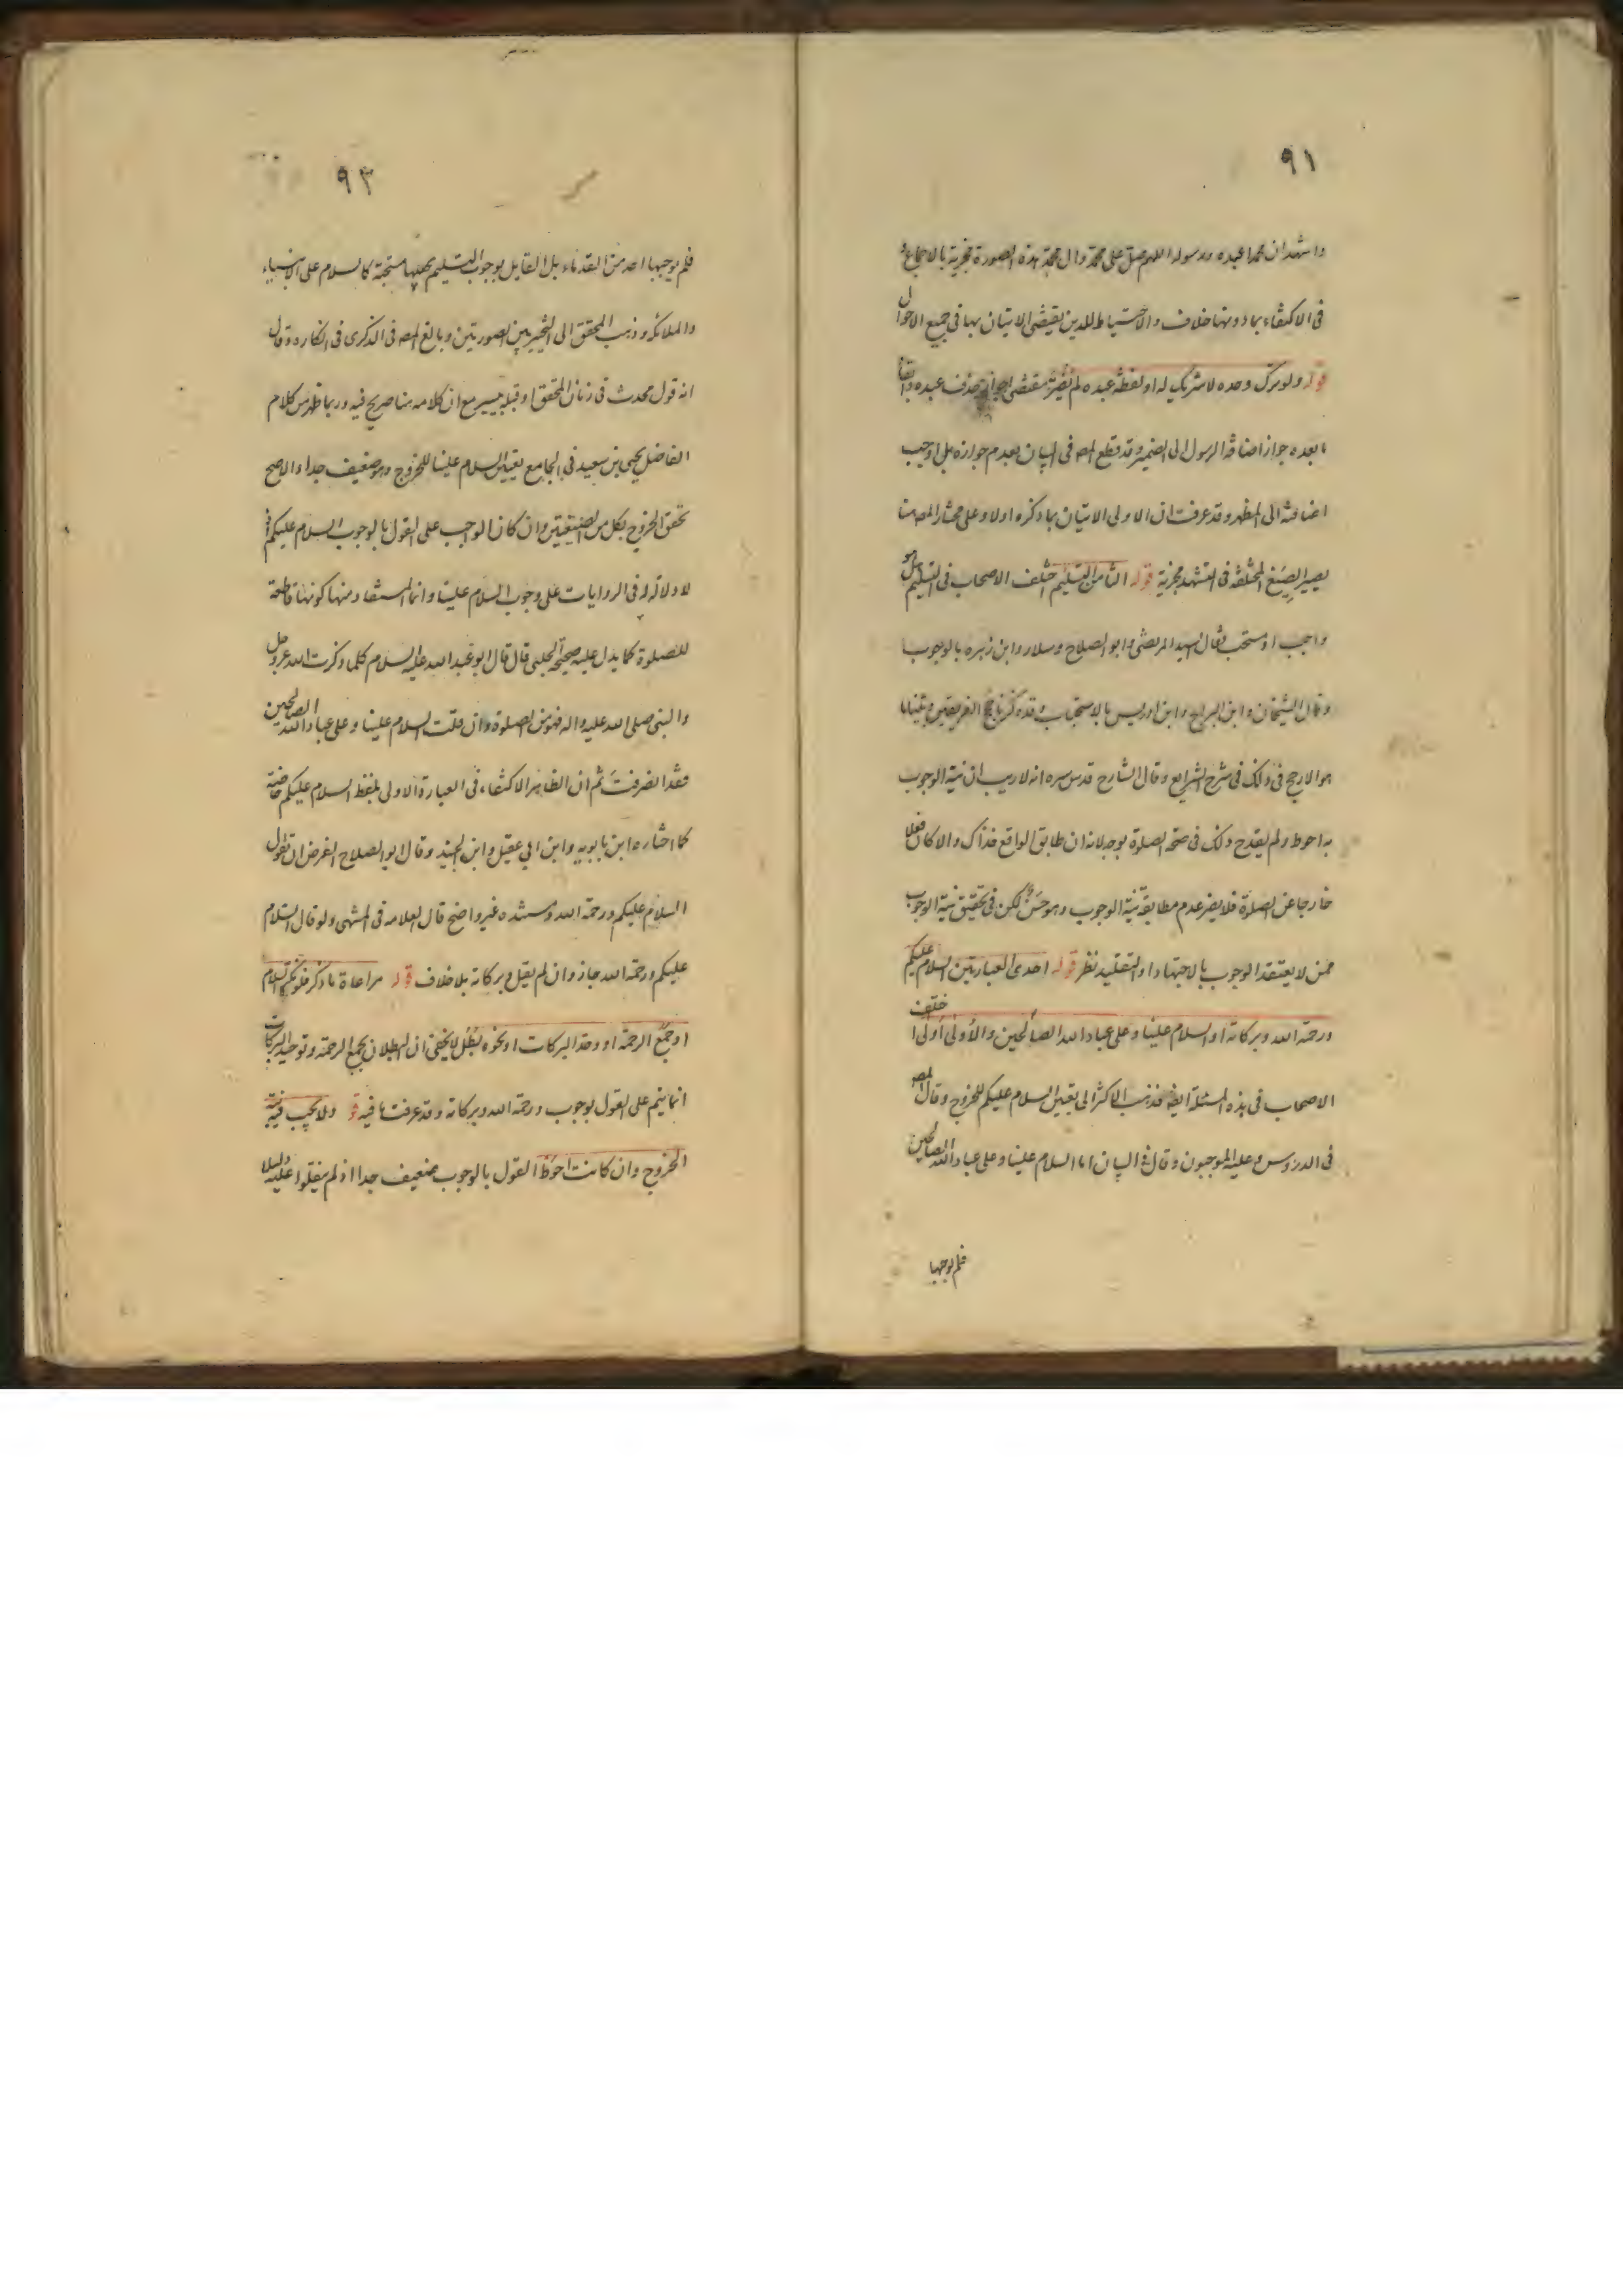 ٩١
واشهد ان محمدا عبده ورسوله اللهم صل على محمد وال محمد بهذه الصورة مجزية بالاجماع و
فى الاكتفاء بما دونها خلاف والاحتياط للدين يقتضى الاتيان بها فى جميع الاحوال
قوله ولو ترك وحده لا شريك له او لفظة عبده لم يضر مقتضى جواز حذف عبده وابقا
ما بعده جواز اضافة الرسول الى الضمير وقد قطع المص فى البيان بعدم جوازه بل اوجب
اضافته الى المظهر وقد عرفت ان الاولى الاتيان بما ذكره اولا وعلى مختار المص هنا
يصير الصيغ المختلفة فى التشهد مجزية قوله الثامن التسليم اختلف الاصحاب فى التسليم هل هو
واجب او مستحب فقال السيد المرتضى وابو الصلاح وسلار وابن زهره بالوجوب
وقال الشيخان وابن البراج وابن ادريس بالاستحباب وقد ذكرنا حجج الفريقين وبينا ما
هو الارجح فى ذلك فى شرح الشرايع وقال الشارح قدس سره انه لا ريب ان نية الوجوب
به احوط ولم يقدح ذلك فى صحة الصلوة بوجه لانه ان طابق الواقع فذاك والا كان فعلا
خارجا عن الصلوة فلا يضر عدم مطابقة نية الوجوب وهو حسن لكن فى تحقيق نية الوجوب
ممن لا يعتقد الوجوب بالاجتهاد او التقليد نظر قوله احدى العبارتين السلام عليكم
ورحمة الله وبركاته او السلام علينا وعلى عباد الله الصالحين والاولى اولى اختلف
الاصحاب فى هذه المسئلة ايضا فذهب الاكثر الى تعيين السلام عليكم للخروج وقال المص
فى الدروس وعليه الموجبون وقال فى البيان اما السلام علينا وعلى عباد الله الصالحين
فلم يوجبها
٩٢
فلم يوجبها احد من القدماء بل القايل بوجوب التسليم يجعلها مستحبة كالسلام على الانبياء
والملائكة وذهب المحقق الى التخيير بين الصورتين وبالغ المص فى الذكرى فى انكاره وقال
انه قول محدث فى زمان المحقق او قبله بيسير مع ان كلامه هنا صريح فيه وربما ظهر من كلام
الفاضل يحيى بن سعيد فى الجامع تعيين السلام علينا للخروج وهو ضعيف جدا والاصح
تحقق الخروج بكل من الصيغتين وان كان الواجب على القول بالوجوب السلام عليكم اذ
لا دلالة فى الروايات على وجوب السلام علينا وانما المستفاد منها كونها قاطعة
للصلوة كما يدل عليه صحيحة الحلبى قال قال ابو عبد الله عليه السلام كلما ذكرت الله عز وجل
والنبى صلى الله عليه واله فهو من الصلوة وان قلت السلام علينا وعلى عباد الله الصالحين
فقد انصرفت ثم ان الظاهر الاكتفاء فى العبارة الاولى بلفظ السلام عليكم خاصة
كما اختاره ابن بابويه وابن ابى عقيل وابن الجنيد وقال ابو الصلاح الفرض ان تقول
السلام عليكم ورحمة الله ومستنده غير واضح قال العلامه فى المنتهى ولو قال السلام
عليكم ورحمة الله جاز وان لم يقل وبركاته بلا خلاف قوله مراعاة ما ذكر فلو نكر السلام
او جمع الرحمة او وحد البركات او نحوه بطل لا يخفى ان البطلان بجمع الرحمة وتوحيد البركات
انما يتم على القول بوجوب ورحمة الله وبركاته وقد عرفت ما فيه قو ولا يجب فيه نية
الخروج وان كانت احوط القول بالوجوب ضعيف جدا اذ لم ينقلوا عليه دليلا